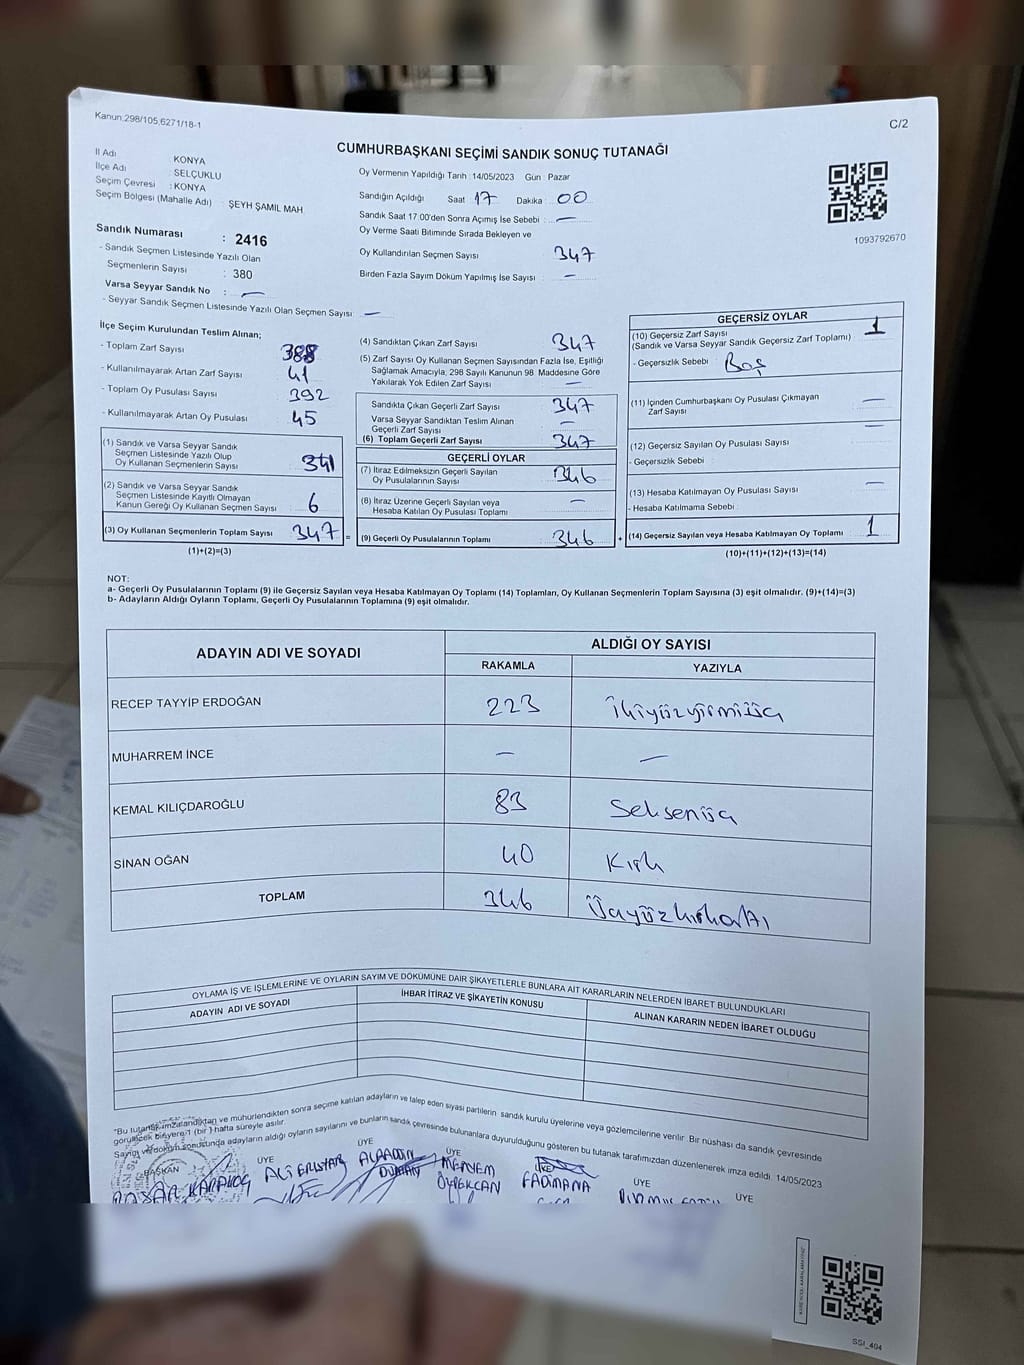 Kanun.298/105,6271/18-1
C/2
CUMHURBAŞKANI SEÇİMİ SANDIK SONUÇ TUTANAĞI
İl Adı KONYA
İlçe Adı : SELÇUKLU
Seçim Çevresi : KONYA
Seçim Bölgesi (Mahalle Adı) : ŞEYH ŞAMİL MAH
Sandık Numarası : 2416
- Sandık Seçmen Listesinde Yazılı Olan
Seçmenlerin Sayısı : 380
Varsa Seyyar Sandık No : —
- Seyyar Sandık Seçmen Listesinde Yazılı Olan Seçmen Sayısı: —
Oy Vermenin Yapıldığı Tarih :14/05/2023 Gün : Pazar
Sandığın Açıldığı Saat 17 Dakika : 00
Sandık Saat 17:00'den Sonra Açımış İse Sebebi : —
Oy Verme Saati Bitiminde Sırada Bekleyen ve
Oy Kullandırılan Seçmen Sayısı 347
Birden Fazla Sayım Döküm Yapılmış İse Sayısı : —
1093792670
İlçe Seçim Kurulundan Teslim Alınan;
- Toplam Zarf Sayısı 388
- Kullanılmayarak Artan Zarf Sayısı 41
- Toplam Oy Pusulası Sayısı 392
- Kullanılmayarak Artan Oy Pusulası 45
(1) Sandık ve Varsa Seyyar Sandık
Seçmen Listesinde Yazılı Olup
Oy Kullanan Seçmenlerin Sayısı 341
(2) Sandık ve Varsa Seyyar Sandık
Seçmen Listesinde Kayıtlı Olmayan
Kanun Gereği Oy Kullanan Seçmen Sayısı 6
(3) Oy Kullanan Seçmenlerin Toplam Sayısı 347 =
(1)+(2)=(3)
(4) Sandıktan Çıkan Zarf Sayısı 347
(5) Zarf Sayısı Oy Kullanan Seçmen Sayısından Fazla İse, Eşitliği
Sağlamak Amacıyla, 298 Sayılı Kanunun 98. Maddesine Göre
Yakılarak Yok Edilen Zarf Sayısı —
Sandıkta Çıkan Geçerli Zarf Sayısı 347
Varsa Seyyar Sandıktan Teslim Alınan
Geçerli Zarf Sayısı —
(6) Toplam Geçerli Zarf Sayısı 347
GEÇERLİ OYLAR
(7) İtiraz Edilmeksizin Geçerli Sayılan
Oy Pusulalarının Sayısı 346
(8) İtiraz Üzerine Geçerli Sayılan veya
Hesaba Katılan Oy Pusulası Toplamı —
(9) Geçerli Oy Pusulalarının Toplamı 346 +
GEÇERSİZ OYLAR
(10) Geçersiz Zarf Sayısı 1
(Sandık ve Varsa Seyyar Sandık Geçersiz Zarf Toplamı)
- Geçersizlik Sebebi : Boş
(11) İçinden Cumhurbaşkanı Oy Pusulası Çıkmayan
Zarf Sayısı —
(12) Geçersiz Sayılan Oy Pusulası Sayısı —
- Geçersizlik Sebebi :
(13) Hesaba Katılmayan Oy Pusulası Sayısı —
- Hesaba Katılmama Sebebi :
(14) Geçersiz Sayılan veya Hesaba Katılmayan Oy Toplamı 1
(10)+(11)+(12)+(13)=(14)
NOT:
a- Geçerli Oy Pusulalarının Toplamı (9) ile Geçersiz Sayılan veya Hesaba Katılmayan Oy Toplamı (14) Toplamları, Oy Kullanan Seçmenlerin Toplam Sayısına (3) eşit olmalıdır. (9)+(14)=(3)
b- Adayların Aldığı Oyların Toplamı, Geçerli Oy Pusulalarının Toplamına (9) eşit olmalıdır.
ADAYIN ADI VE SOYADI
ALDIĞI OY SAYISI
RAKAMLA YAZIYLA
RECEP TAYYİP ERDOĞAN 223 İkiyüzyirmiüç
MUHARREM İNCE — —
KEMAL KILIÇDAROĞLU 83 Seksenüç
SİNAN OĞAN 40 Kırk
TOPLAM 346 Üçyüzkırkaltı
OYLAMA İŞ VE İŞLEMLERİNE VE OYLARIN SAYIM VE DÖKÜMÜNE DAİR ŞİKAYETLERLE BUNLARA AİT KARARLARIN NELERDEN İBARET BULUNDUKLARI
ADAYIN ADI VE SOYADI İHBAR İTİRAZ VE ŞİKAYETİN KONUSU ALINAN KARARIN NEDEN İBARET OLDUĞU
"Bu tutanak imzalandıktan ve mühürlendikten sonra seçime katılan adayların ve talep eden siyasi partilerin sandık kurulu üyelerine veya gözlemcilerine verilir. Bir nüshası da sandık çevresinde
görülecek bir yere 1 (bir) hafta süreyle asılır
Sayım ve döküm sonucunda adayların aldığı oyların sayılarını ve bunların sandık çevresinde bulunanlara duyurulduğunu gösteren bu tutanak tarafımızdan düzenlenerek imza edildi. 14/05/2023
BAŞKAN ÜYE ÜYE ÜYE ÜYE ÜYE ÜYE
ALAADDİN DUMAN
MERYEM
FADİMANA
SSİ_404